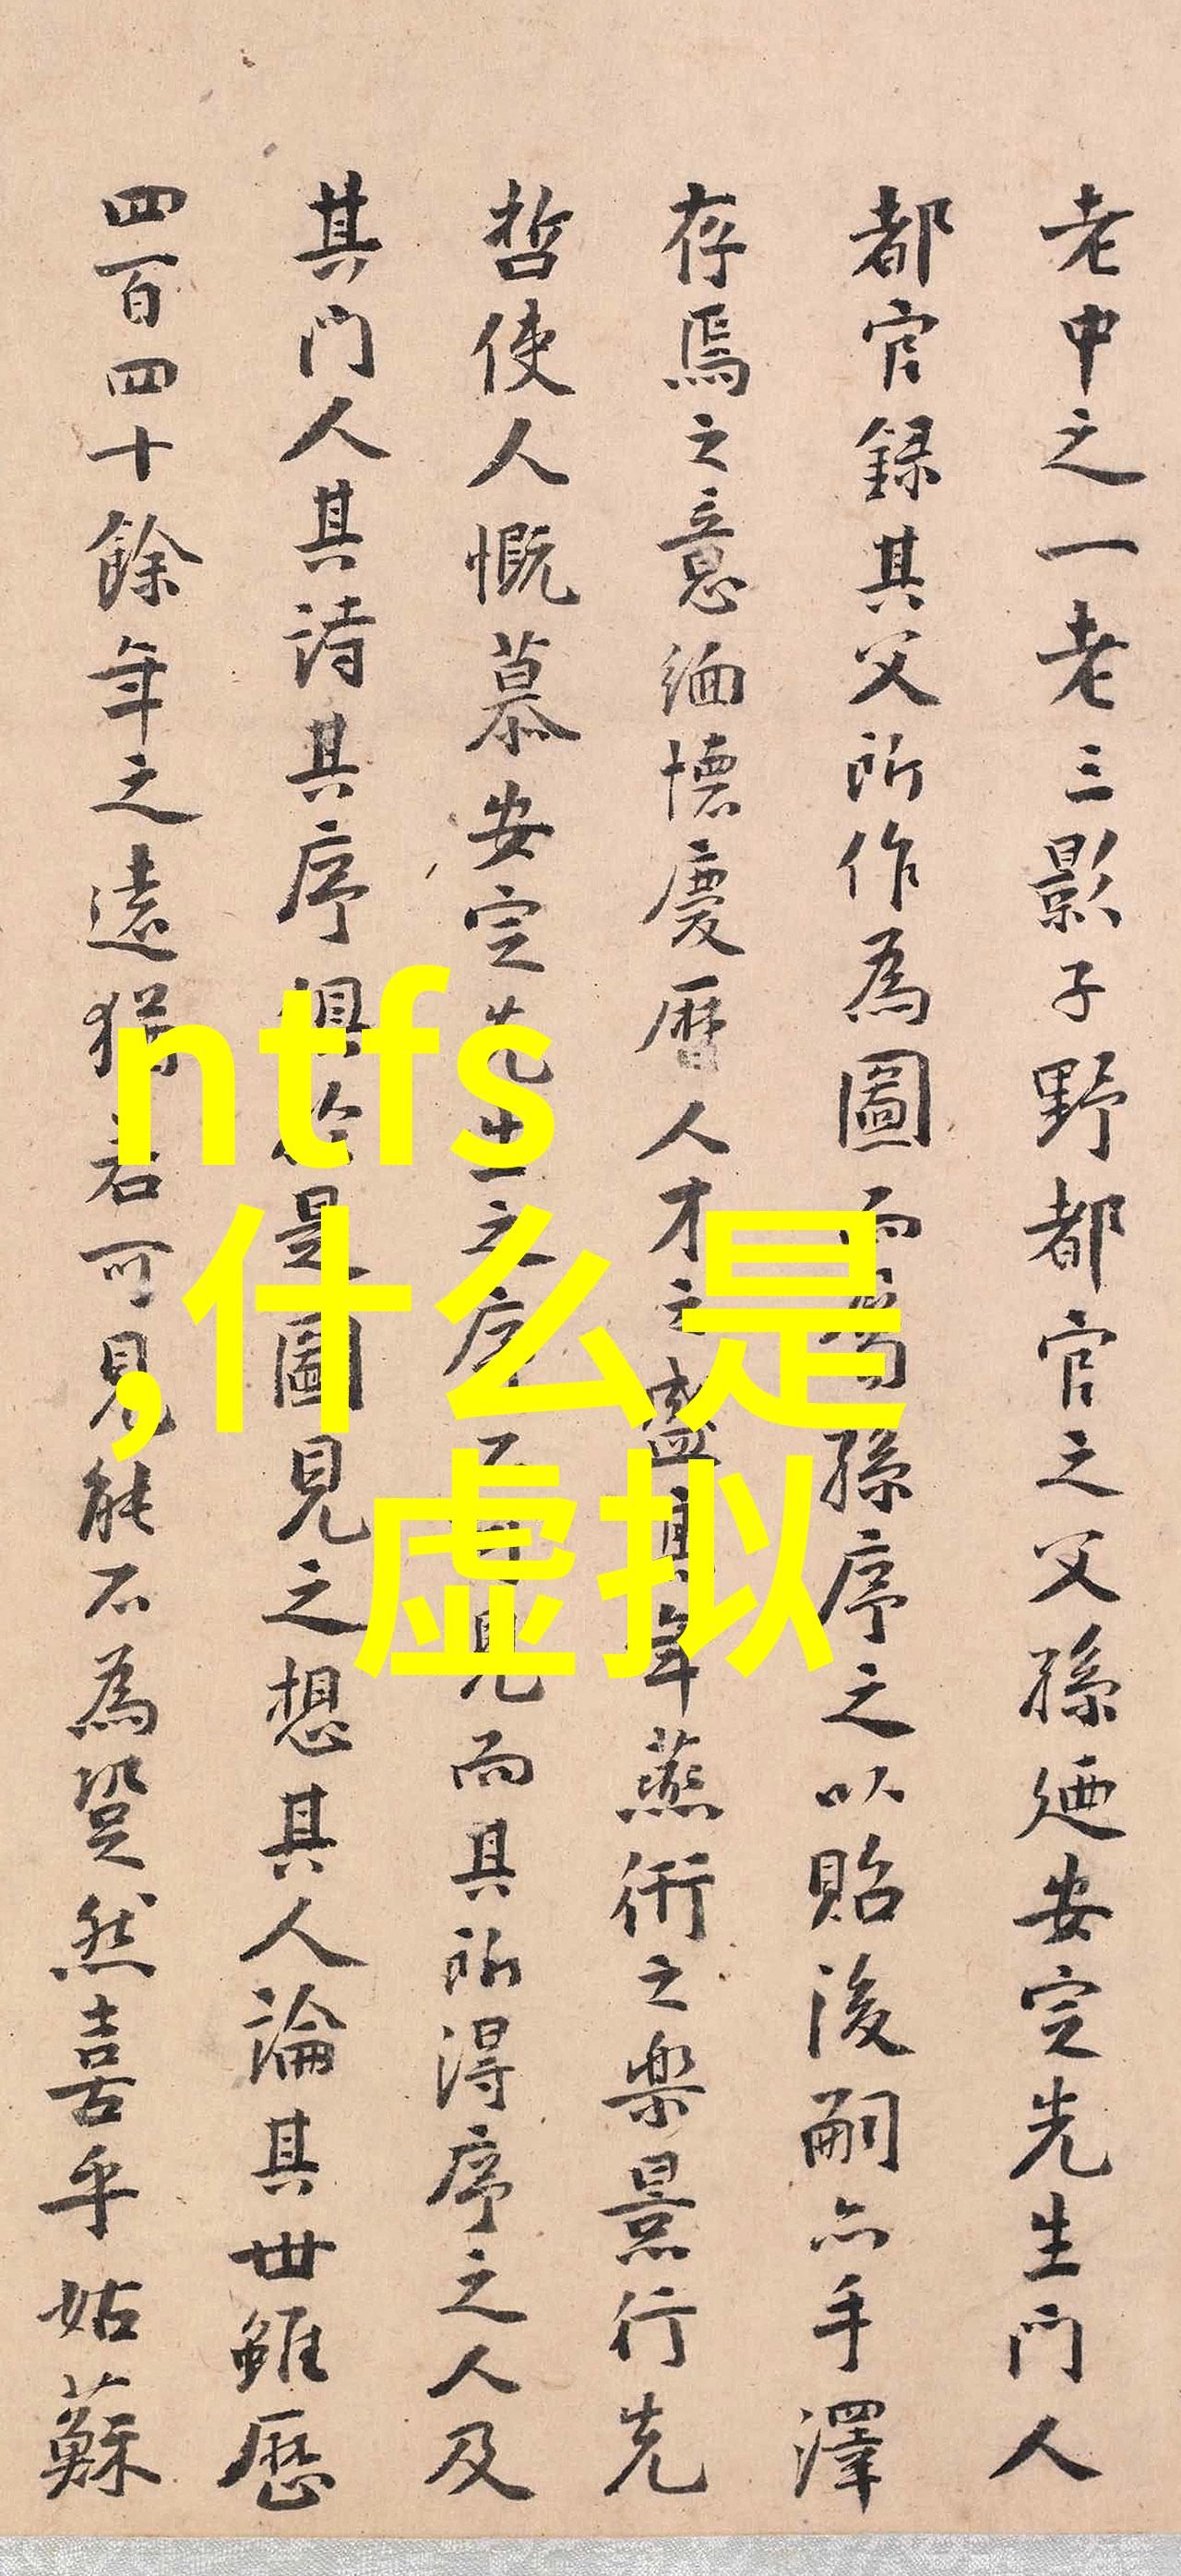 老中之一老三影子野都官之父孫廼安定先生門人
都官録其父所作為圖而屬孫序之以貽後嗣亦手澤
存焉之意緬懷慶曆人才之盛其年燕衎之樂景行先
哲使人慨慕安定先生之序不可見而其所得序之人及
其門人其詩其序俱於是圖見之想其人論其世雖歷
四百四十餘年之遠猶若可見能不為跫然喜乎姑蘇
ntfs
,什么是
虚拟